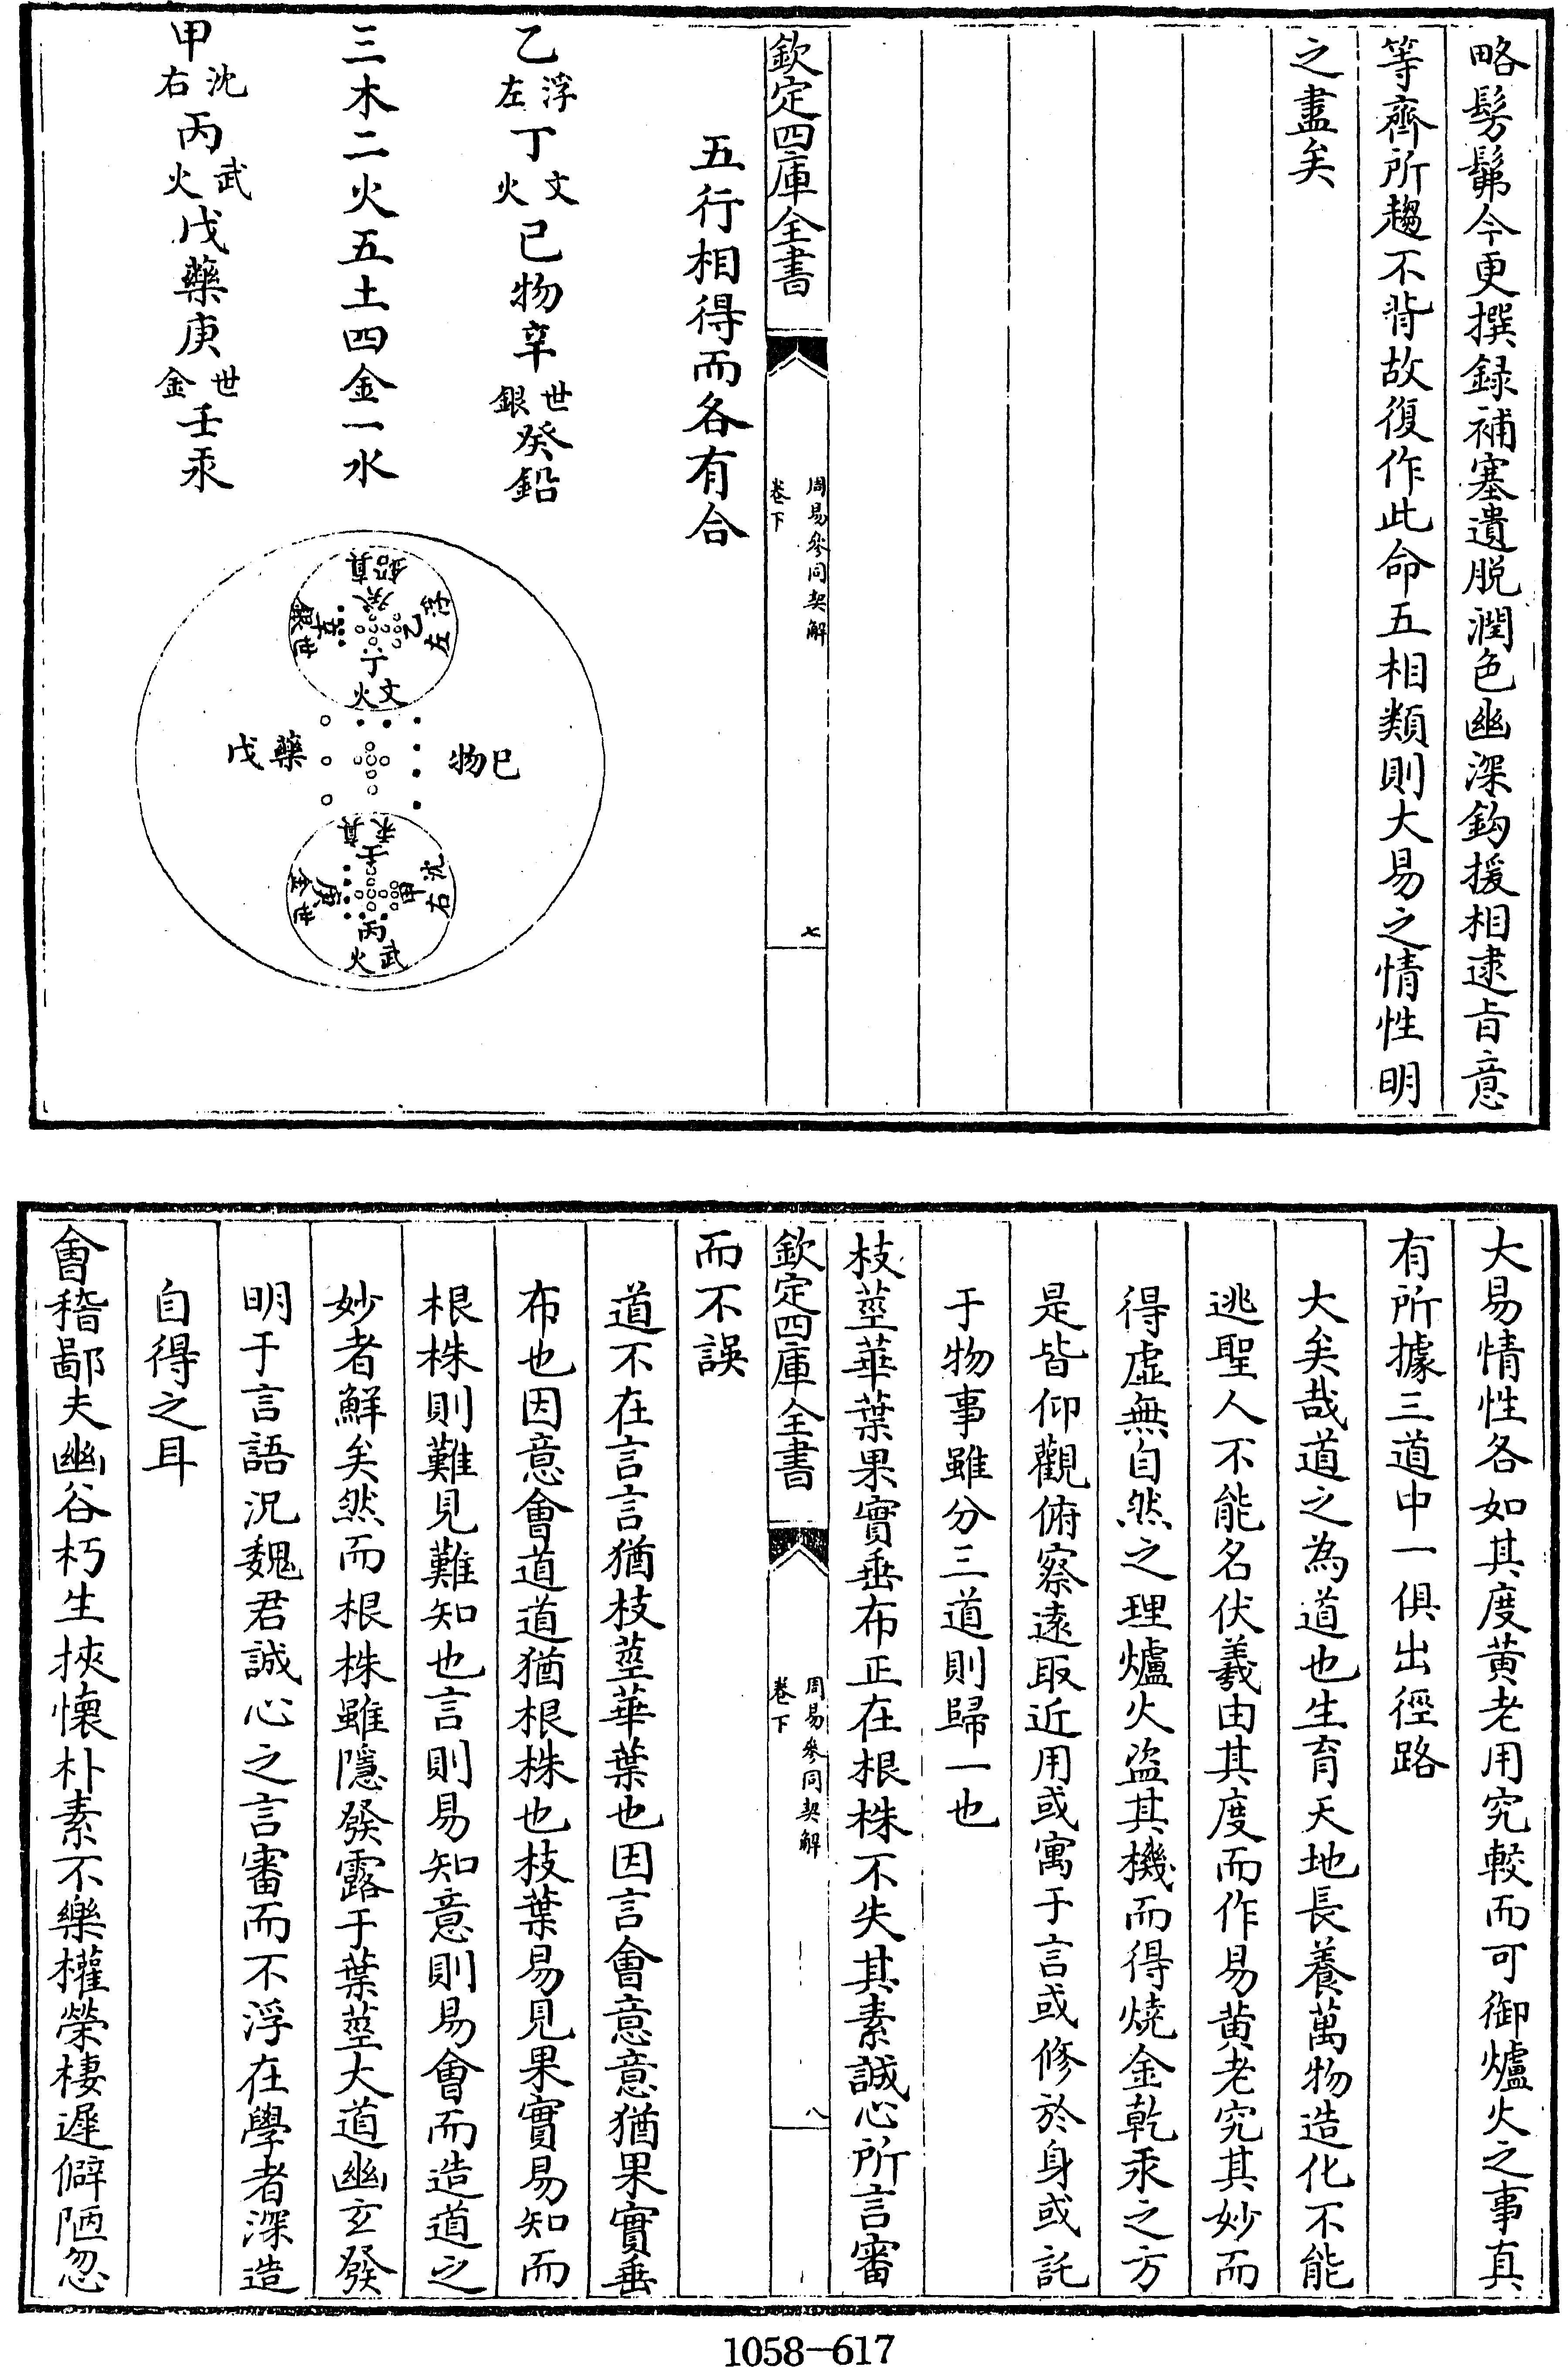 略髣髴今更撰録補塞遺脱潤色幽深鈎援相逮㫖意
等齊所趨不背故復作此命五相類則大易之情性明
之盡矣
欽定四庫全書
周易參同契解
卷下
七
五行相得而各有合
乙浮左丁文火己物辛世銀癸鉛
三木二火五土四金一水
甲沈右丙武火戊藥庚世金壬汞
真鉛
癸
浮左
乙
辛
世銀
丁
文火
戊藥
己物
真汞
壬
沈右
甲
庚
世金
丙
武火
大易情性各如其度黄老用究較而可御爐火之事真
有所據三道中一俱出徑路
大矣哉道之為道也生育天地長養萬物造化不能
逃聖人不能名伏羲由其度而作易黄老究其妙而
得虛無自然之理爐火盗其機而得燒金乾汞之方
是皆仰觀俯察遠取近用或寓于言或修於身或託
于物事雖分三道則歸一也
枝莖華葉果實垂布正在根株不失其素誠心所言審
欽定四庫全書
周易參同契解
卷下
八
而不誤
道不在言言猶枝莖華葉也因言會意意猶果實垂
布也因意會道道猶根株也枝葉易見果實易知而
根株則難見難知也言則易知意則易會而造道之
妙者鮮矣然而根株雖隱發露于葉莖大道幽玄發
明于言語況魏君誠心之言審而不浮在學者深造
自得之耳
會稽鄙夫幽谷朽生挾懷朴素不樂權榮棲遲僻陋忽
1058-617